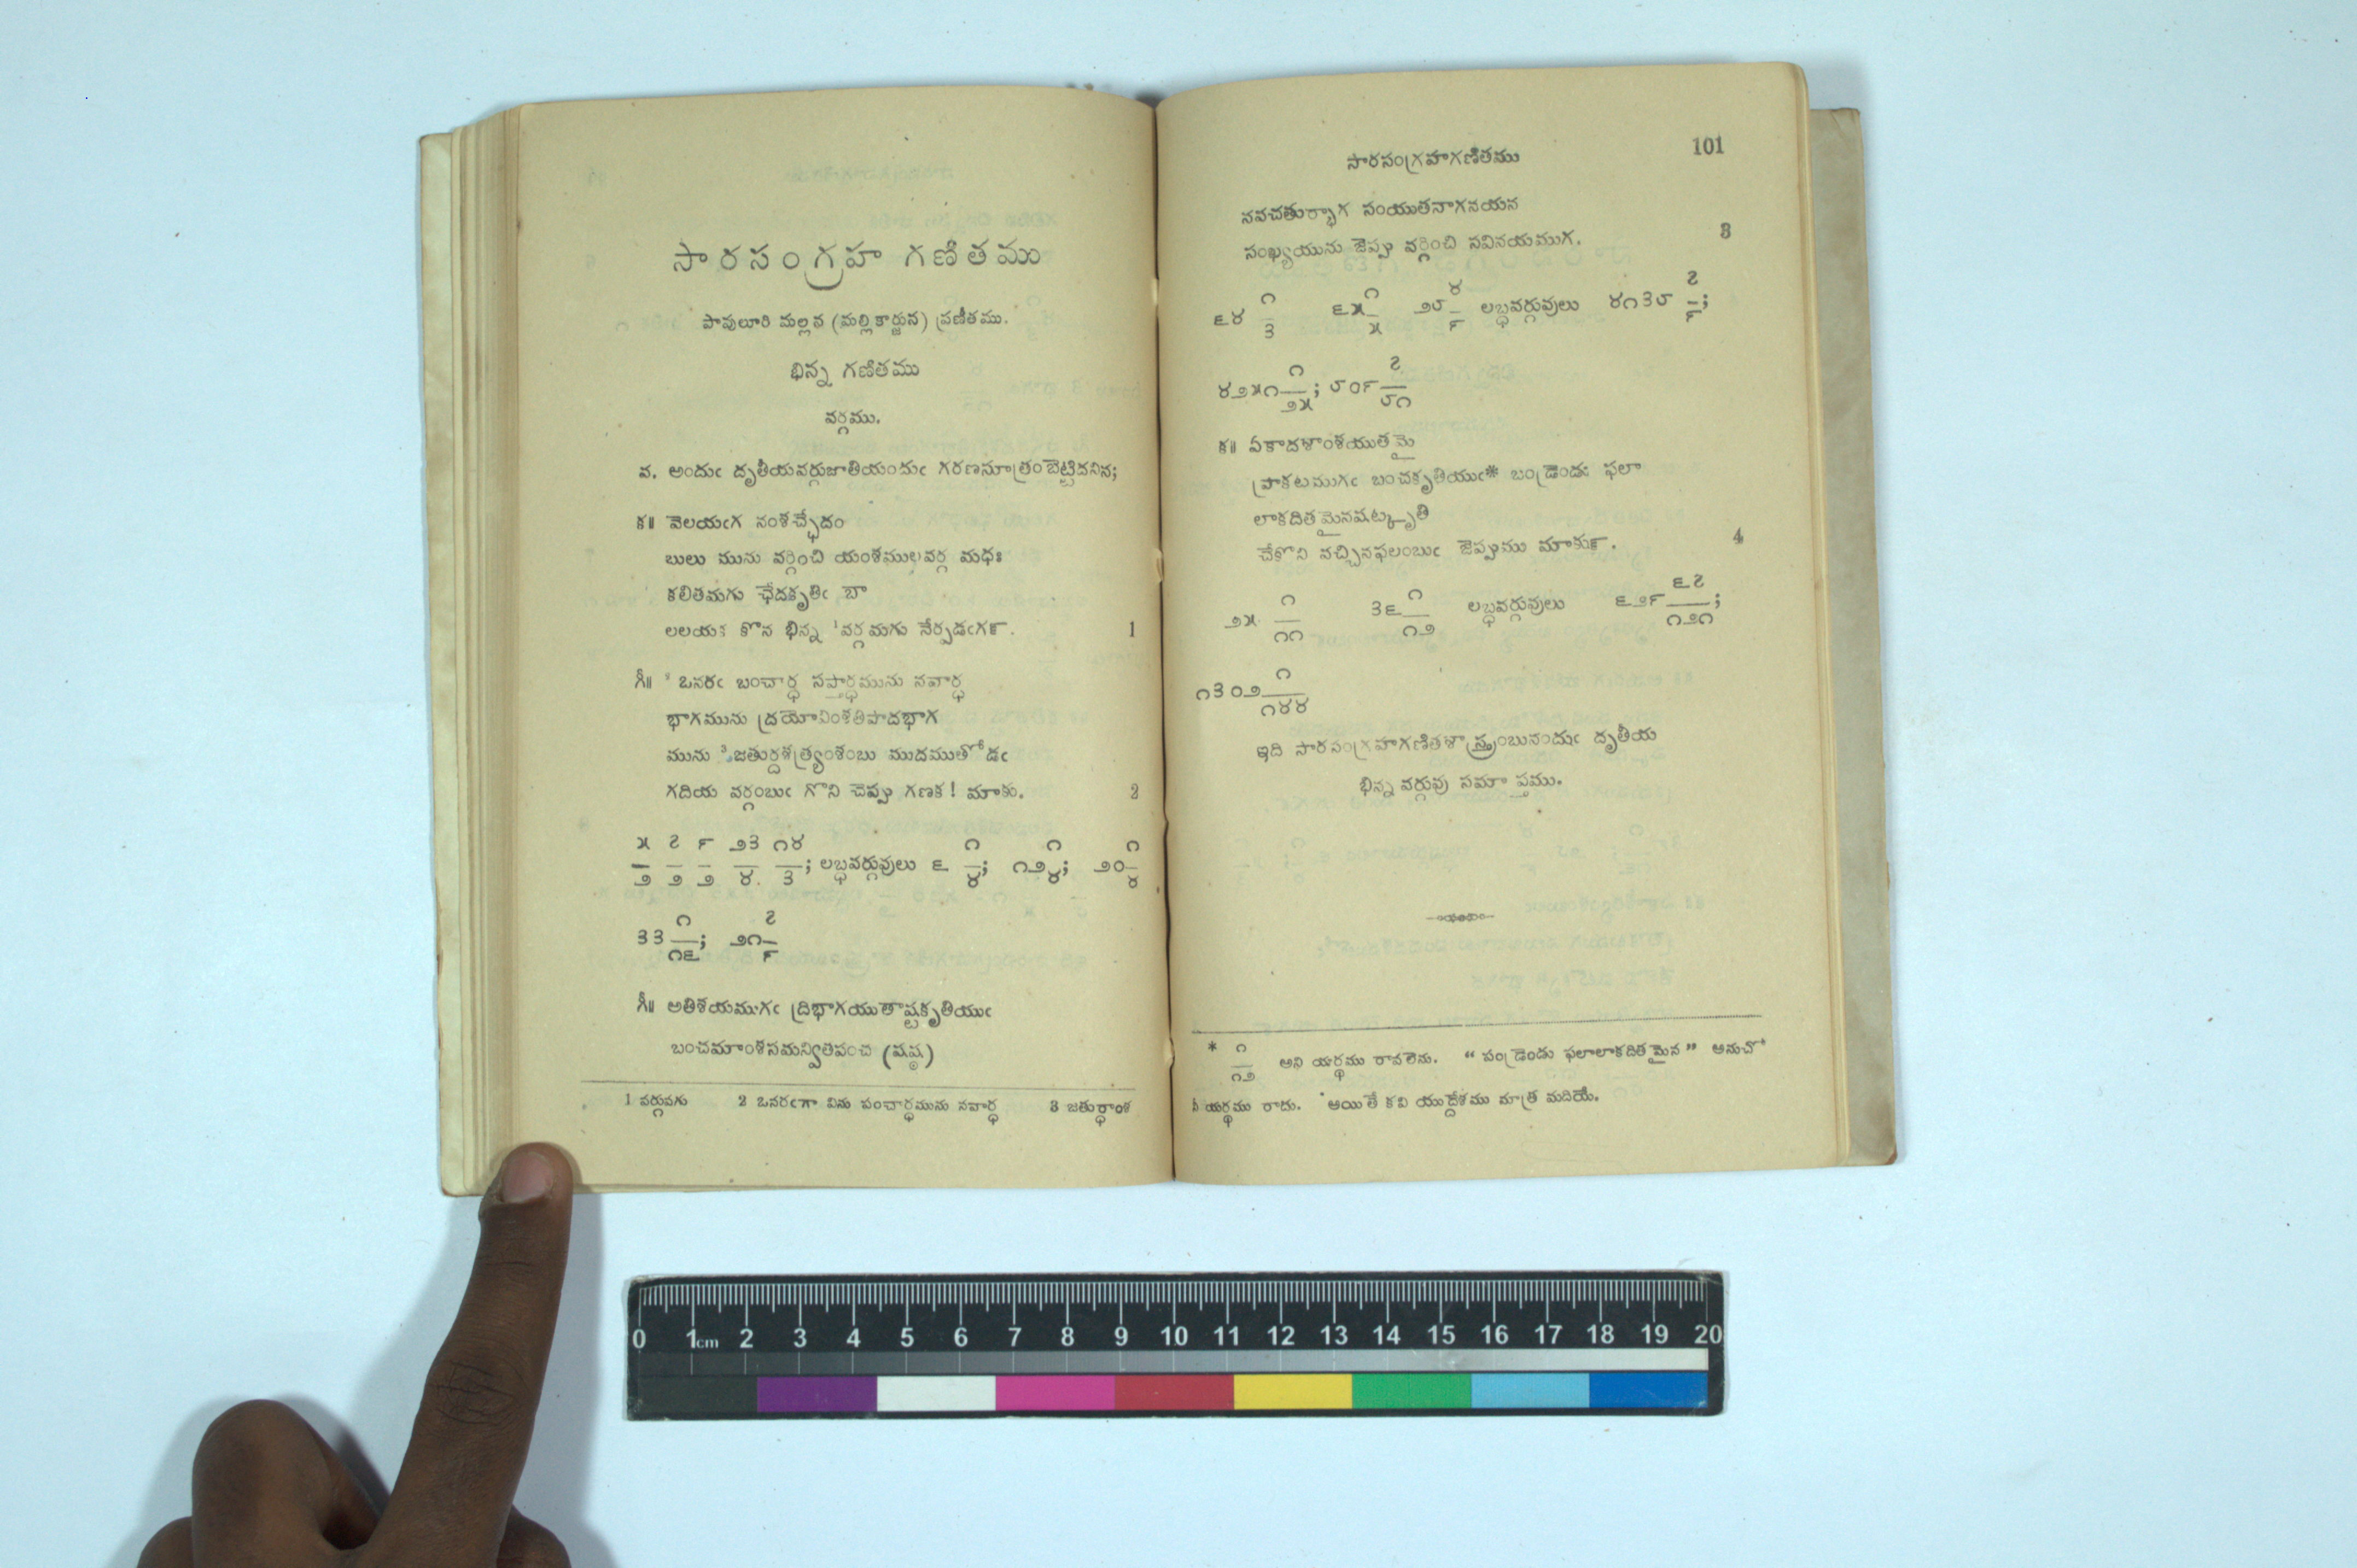 సారసంగ్రహ గణితము
పావులూరి మల్లన (మల్లికార్జున) ప్రణీతము.
భిన్న గణితము
వర్గము.
వ. అందుఁ దృతీయవర్గుజాతియందుఁ గరణసూత్రంబెట్టిదనిన;
క॥ వెలయఁగ నంశచ్ఛేదం
బులు మును వర్గించి యంశములవర్గ మధః
కలితమగు ఛేదకృతిఁ బా
లలయఁ కొన భిన్న ¹వర్గమగు నేర్పడఁగ౯. 1
గీ॥ ² ఒనరఁ బంచార్ధ సప్తార్ధమును నవార్ధ
భాగమును ద్రయోవింశతిపాదభాగ
మును ³జతుర్దశత్ర్యంశంబు ముదముతోడఁ
గదియ వర్గంబుఁ గొని చెప్పు గణక! మాకు. 2
౫/౨ ౭/౨ ౯/౨ ౨౩/౪ ౧౪/౩; లబ్ధవర్గువులు ౬ ౧/౪; ౧౨ ౧/౪; ౨౦ ౧/౪
౩౩ ౧/౧౬; ౨౧ ౭/౯
గీ॥ అతిశయముగఁ ద్రిభాగయుతాష్టకృతియుఁ
బంచమాంశసమన్వితపంచ (షష్ఠ)
1 వర్గువగు 2 ఒనరఁగా విను పంచార్ధమును నవార్ధ 3 జతుర్థాంశ
సారసంగ్రహగణితము 101
నవచతుర్భాగ సంయుతనాగనయన
సంఖ్యయును జెప్పు వర్గించి సవినయముగ. 3
౬౪ ౧/౩ ౬౫ ౧/౫ ౨౮ ౪/౯ లబ్ధవర్గువులు ౪౧౩౮ ౭/౯;
౪౨౫౧ ౧/౨౫; ౮౦౯ ౭/౮౧
క॥ ఏకాదశాంశయుతమై
ప్రాకటముగఁ బంచకృతియుఁ* బండ్రెండు ఫలా
లాకదితమైనషట్కృతి
చేకొని వచ్చినఫలంబుఁ జెప్పుము మాకు౯. 4
౨౫ ౧/౧౧ ౩౬ ౧/౧౨ లబ్ధవర్గువులు ౬౨౯ ౬౭/౧౨౧;
౧౩౦౨ ౧/౧౪౪
ఇది సారసంగ్రహగణితశాస్త్రంబునందుఁ దృతీయ
భిన్న వర్గువు సమాప్తము.
* ౧/౧౨ అని యర్థము రావలెను. "పండ్రెండు ఫలాలాకదితమైన" అనుచో
నీ యర్థము రాదు. అయితే కవి యుద్దేశము మాత్ర మదియే.